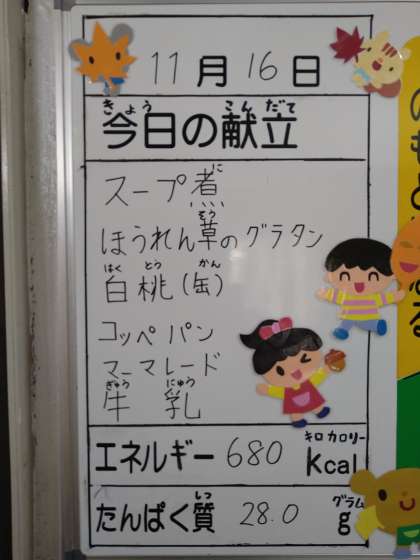 11月16日
きょう こんだて
今日の献立
に
スープ煮
そう
ほうれん草のグラタン
はく とう かん
白桃(缶)
コッペパン
マーマレード
ぎゅう にゅう
牛 乳
キロカロリー
エネルギー 680 Kcal
しつ グラム
たんぱく質 28.0 g